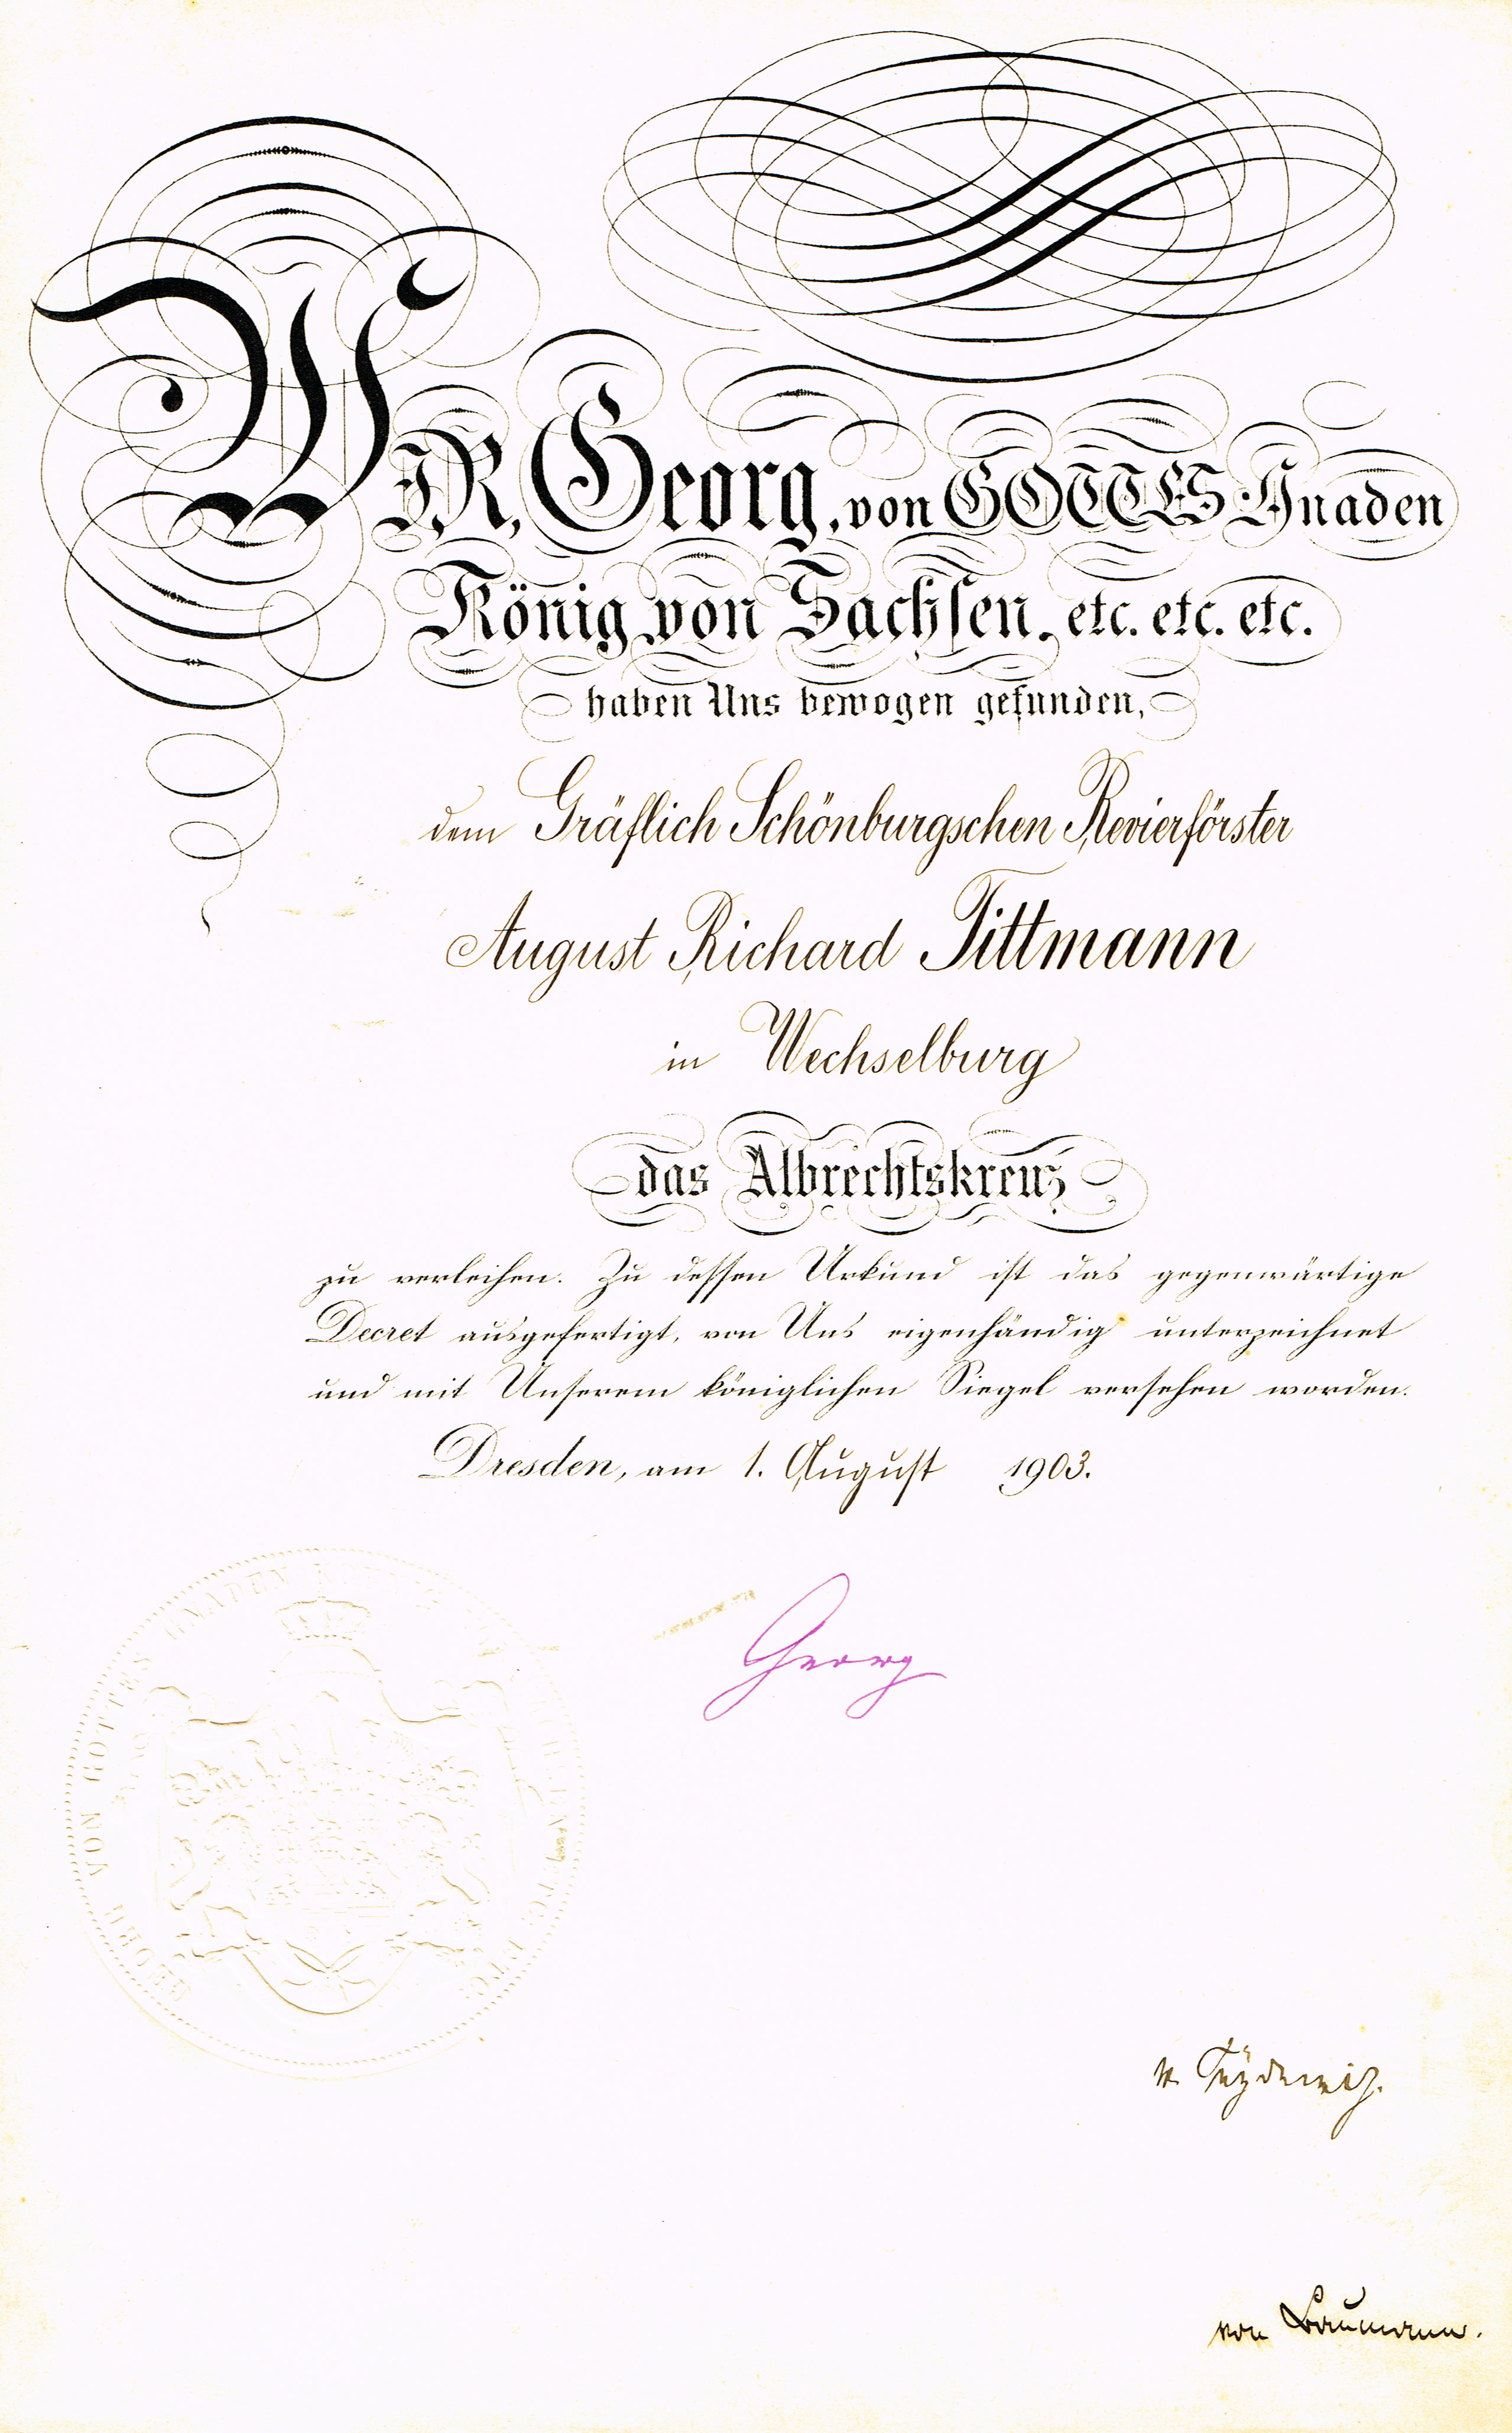 WIR, Georg, von GOTTES Gnaden
König von Sachsen, etc. etc. etc.
haben Uns bewogen gefunden,
dem Gräflich Schönburgschen Revierförster
August Richard Tittmann
in Wechselburg
das Albrechtskreuz
zu verleihen. Zu dessen Urkund ist das gegenwärtige
Decret ausgefertigt, von Uns eigenhändig unterzeichnet
und mit Unserem königlichen Siegel versehen worden.
Dresden, am 1. August 1903.
Georg
GEORG VON GOTTES GNADEN
von Baumann.